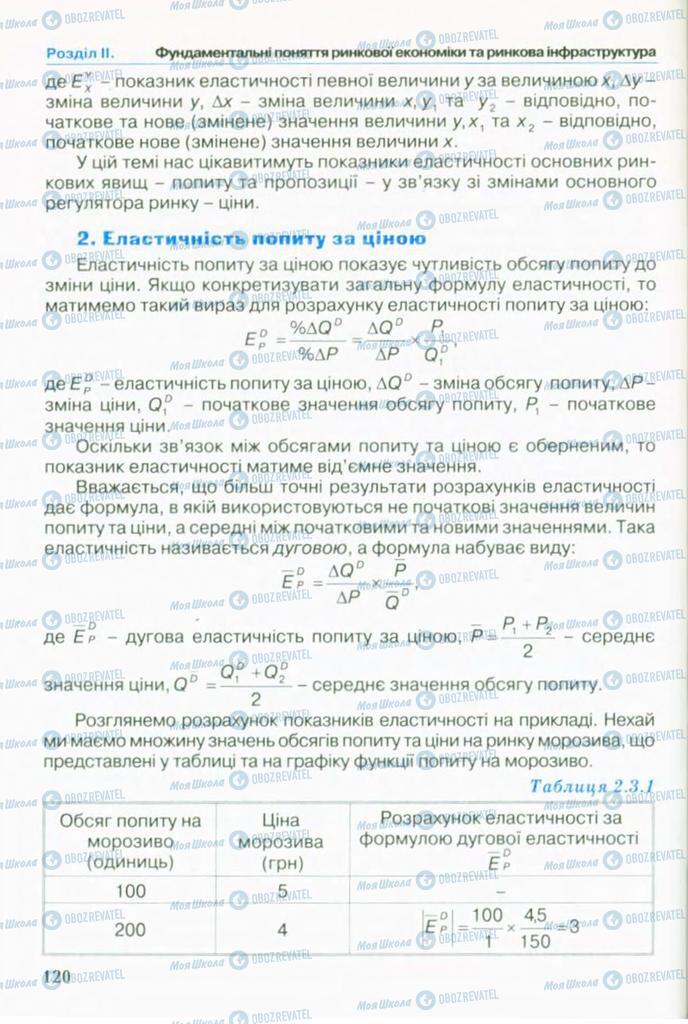 Розділ II. Фундаментальні поняття ринкової економіки та ринкова інфраструктура
де E_x^y – показник еластичності певної величини y за величиною x, Δy –
зміна величини y, Δx – зміна величини x, y₁ та y₂ – відповідно, по-
чаткове та нове (змінене) значення величини y, x₁ та x₂ – відповідно,
початкове нове (змінене) значення величини x.
У цій темі нас цікавитимуть показники еластичності основних рин-
кових явищ – попиту та пропозиції – у зв’язку зі змінами основного
регулятора ринку – ціни.
2. Еластичність попиту за ціною
Еластичність попиту за ціною показує чутливість обсягу попиту до
зміни ціни. Якщо конкретизувати загальну формулу еластичності, то
матимемо такий вираз для розрахунку еластичності попиту за ціною:
E_P^D = %ΔQ^D / %ΔP = ΔQ^D / ΔP × P₁ / Q₁^D,
де E_P^D – еластичність попиту за ціною, ΔQ^D – зміна обсягу попиту, ΔP –
зміна ціни, Q₁^D – початкове значення обсягу попиту, P₁ – початкове
значення ціни.
Оскільки зв’язок між обсягами попиту та ціною є оберненим, то
показник еластичності матиме від’ємне значення.
Вважається, що більш точні результати розрахунків еластичності
дає формула, в якій використовуються не початкові значення величин
попиту та ціни, а середні між початковими та новими значеннями. Така
еластичність називається дуговою, а формула набуває виду:
E̅_P^D = ΔQ^D / ΔP × P̅ / Q̅^D,
де E̅_P^D – дугова еластичність попиту за ціною, P̅ = (P₁ + P₂) / 2 – середнє
значення ціни, Q̅^D = (Q₁^D + Q₂^D) / 2 – середнє значення обсягу попиту.
Розглянемо розрахунок показників еластичності на прикладі. Нехай
ми маємо множину значень обсягів попиту та ціни на ринку морозива, що
представлені у таблиці та на графіку функції попиту на морозиво.
Таблиця 2.3.1
Обсяг попиту на морозиво (одиниць) Ціна морозива (грн) Розрахунок еластичності за формулою дугової еластичності E̅_P^D
100 5 –
200 4 |E̅_P^D| = 100 / 1 × 4,5 / 150 = 3
120
Моя Школа OBOZREVATEL